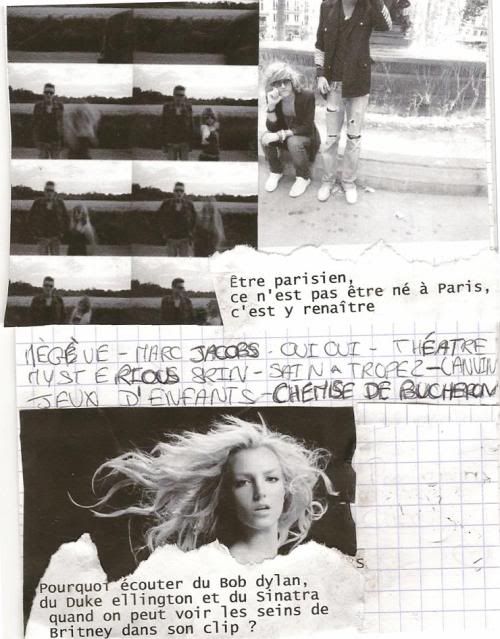 Être parisien,
ce n'est pas être né à Paris,
c'est y renaître
MÈGÈVE - MARC JACOBS - OUI OUI - THÉATRE
MYSTERIOUS SKIN - SAIN TROPEZ - LANVIN
JEUX D'ENFANTS - CHEMISE DE BUCHERON
Pourquoi écouter du Bob dylan,
du Duke ellington et du Sinatra
quand on peut voir les seins de
Britney dans son clip ?